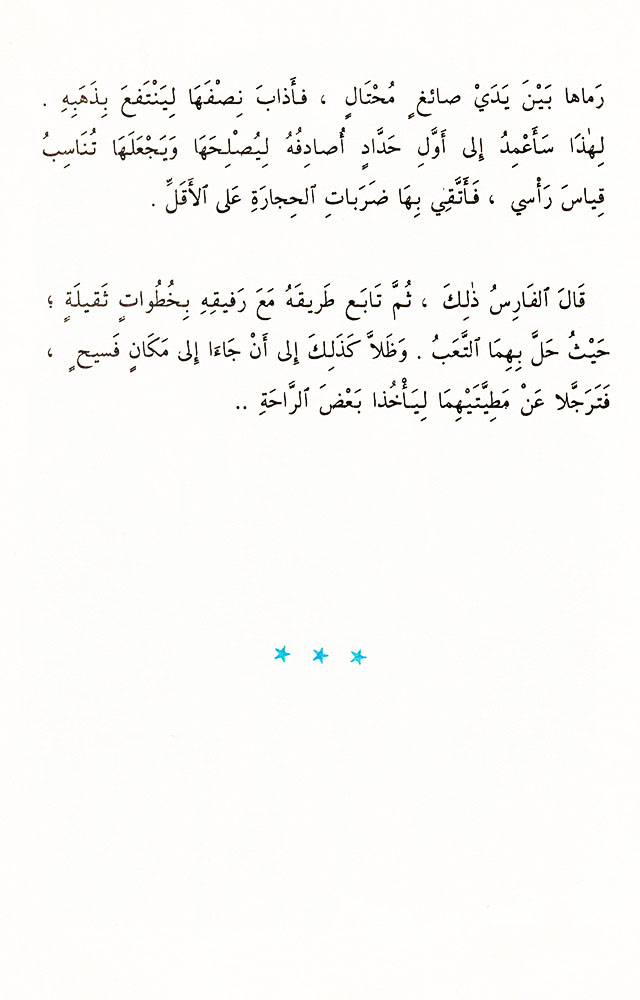 رَماها بَيْنَ يَدَيْ صائغٍ مُحْتَالٍ ، فأَذابَ نِصْفَهَا لِيَنْتَفعَ بِذَهَبِهِ .
لِهٰذَا سَأَعْمِدُ إِلى أَوَّلِ حَدَّادٍ أُصادِفُهُ لِيُصْلِحَهَا وَيَجْعَلَهَا تُنَاسِبُ
قِياسَ رَأْسي ، فَأَتَّقِي بِهَا ضَرَباتِ ٱلحِجارَةِ عَلى ٱلأَقَلِّ .
قَالَ ٱلفَارِسُ ذٰلِكَ ، ثُمَّ تَابَع طَريقَهُ مَعَ رَفيقِهِ بِخُطُواتٍ ثَقيلَةٍ ؛
حَيْثُ حَلَّ بِهِمَا ٱلتَّعَبُ . وَظَلاَّ كَذَلِكَ إِلى أَنْ جَاءَا إِلى مَكَانٍ فَسيحٍ ،
فَتَرَجَّلا عَنْ مَطِيَّتَيْهِمَا لِيَأْخُذا بَعْضَ ٱلرَّاحَةِ ..